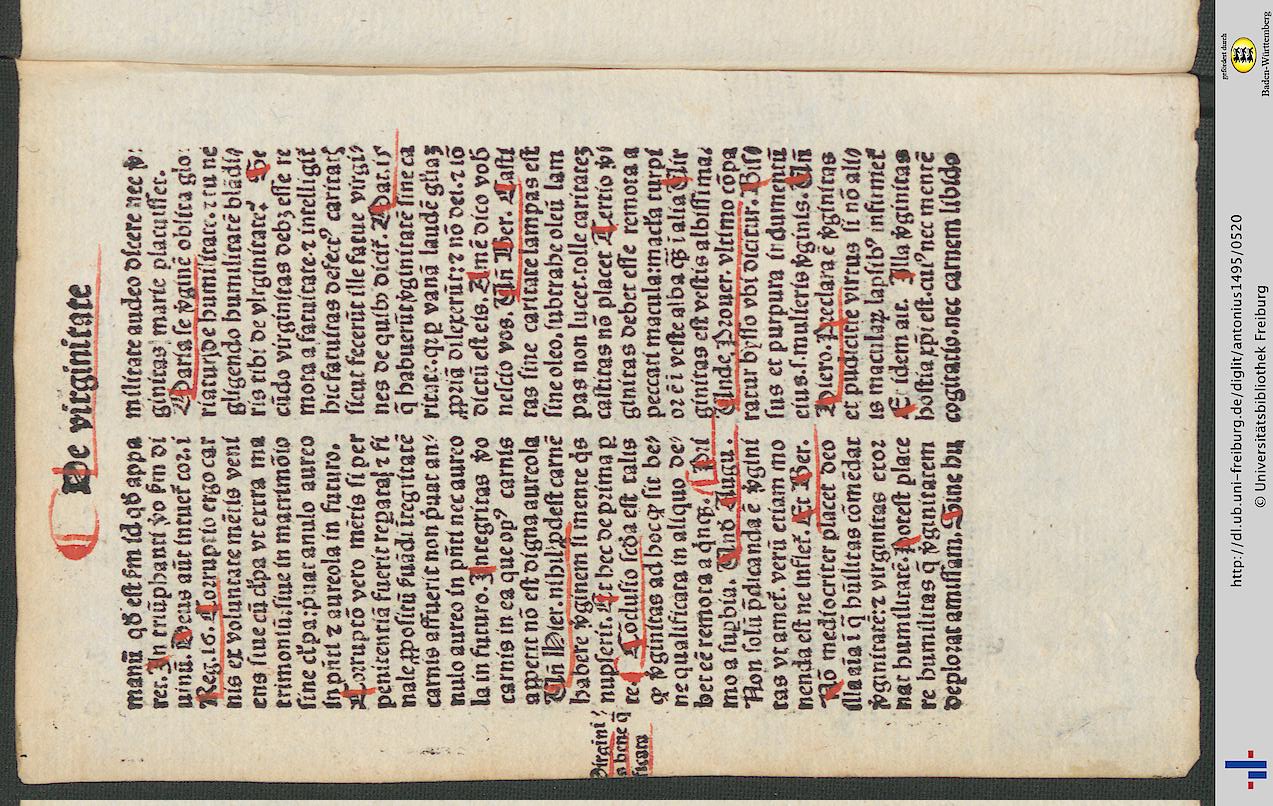 De virginitate
manū qđ est ẜm id.qđ appa
ret.In triūphanti ṽo ẜm di
uinū. Deus aūt intuet᷑ cor.i
Reg.16.Corruptio ergo car
nis ex voluntate mētis veni
ens siue cū culpa vt extra ma
trimoniū:siue in matrimōio
sine culpa.priuat annulo aureo
in p̄nti ⁊ aureola in futuro.
Corruptō vero mētis si per
penitentiā fuerit reparata ⁊ fi
nale ꝓpositū ẜuādi ītegritatē
carnis affuerit non priuat an⸗
nulo aureo in p̄nti nec aureo
la in futuro.Integritas ṽo
carnis in ea que opꝰ carnis
appetit nō est digna aureola
Vñ Hier.nihil ꝓdest carnē
habere ṽginem si mente q̇s
nupserit. Et hec de prima p
te. Cōclusio scḋa est talis
ꝙ ṽginitas ad hoc ꝙ sit be⸗
ne qualificata in aliquo de⸗
bet eē remota a q̇nqꝫ. Pri
mo a suꝑbia. Und Augu.
Non solū p̄dicanda ē ṽgini
tas vt amet᷑ verū etiam mo
nenda est ne inflet᷑. Et Ber.
Nō mediocriter placet deo
illa aīa ī q̄ hūilitas cōmēdat
ṽginitatē ⁊ virginitas exor
nat humilitatē. Potest place
re humilitas q̄ ṽginitatem
deplorat amissam. Sine hu
Virgini⸗
s bene q̄
ficata
militate audeo dicere nec ṽ:
ginitas marie placuisset.
Maria se ṽginē oblita glo:
riatur de humilitate.⁊ tu ne
gligendo humilitatē blādi⸗
ris tibi de virginitate? Se
cūdo virginitas debꝫ esse re
mota a fatuitate.⁊ intelligit᷑
hic fatuitas defectꝰ caritatis
sicut fecerūt ille fatue virgi⸗
nes de quibꝰ dicit᷑. Mat.25
q̄ habuerūt ṽginitatē sine ca
ritate:q2 ꝑ vanā laudē glīaꝫ
ꝓpriā dilexerūt:⁊ nō dei.⁊ iō
dictū est eis. Amē dico vob
nescio vos. Uñ Ber. Casti
tas sine caritate lampas est
sine oleo.subtrahe oleū lam
pas non lucet.tolle caritateꝫ
castitas nō placet Tertio ṽi
ginitas debet esse remota a
peccati macula:macula turpi
or ē ī veste alba q̄ꝫ ī alia Vir
ginitas est vestis albissima.
Unde Prouer. vltimo cōpa
ratur bysso vbi dicitur. Bis⸗
sus et purpura indumentū
eius.s.mulieris ṽginis. Uñ
Cicero. Preclara ē ṽginitas
et pudicitie virtus si nō ali⸗
is macularꝫ lapsibꝰ infirmet᷑
Et idem ait. Illa ṽginitas
hostia xp̄i est.cuiꝰ nec mentē
cogitatio.nec carnem libido
http://dl.ub.uni-freiburg.de/diglit/antonius1495/0520
© Universitätsbibliothek Freiburg
gefördert durch
Baden-Württemberg